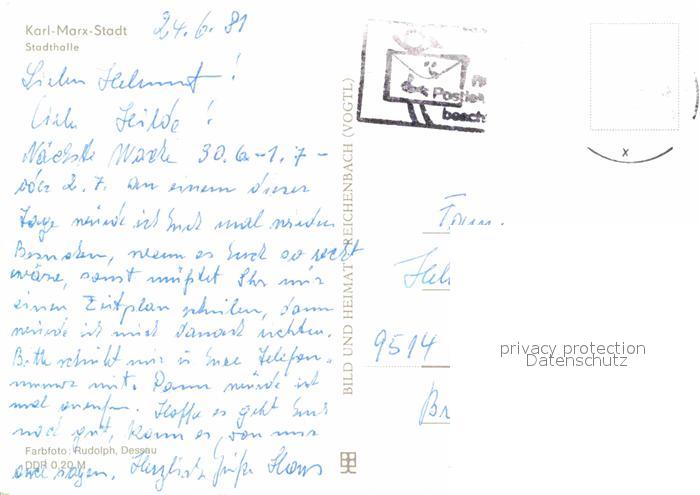 Karl-Marx-Stadt
Stadthalle
24.6.81
Lieber Helmut!
Liebe Hilde!
Nächste Woche 30.6.-1.7-
oder 2.7. an einem dieser
Tage würde ich Euch mal wieder
Besuchen, wenn es Euch so recht
wäre, sonst müßtet Ihr mir
einen Zeitplan schreiben, dann
würde ich mich danach richten.
Bitte schickt mir ja Eure Telefon-
nummer mit. Dann würde ich
mal anrufen. Hoffe es geht Euch
noch gut, kann es von mir
auch sagen. Herzliche Grüße Hans
Farbfoto: Rudolph, Dessau
DDR 0,20 M
BILD UND HEIMAT REICHENBACH (VOGTL)
der Postler
beach
Fam.
Hel
9514
Br
privacy protection
Datenschutz